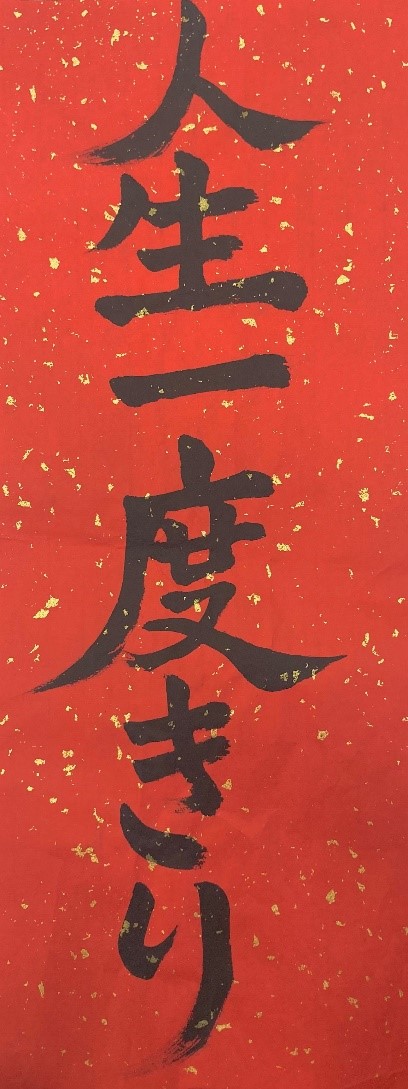 人生一度きり